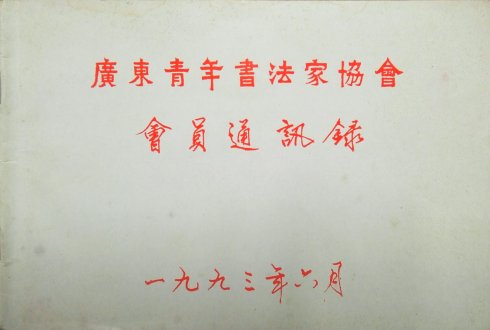 廣東青年書法家協會
會員通訊錄
一九九三年六月